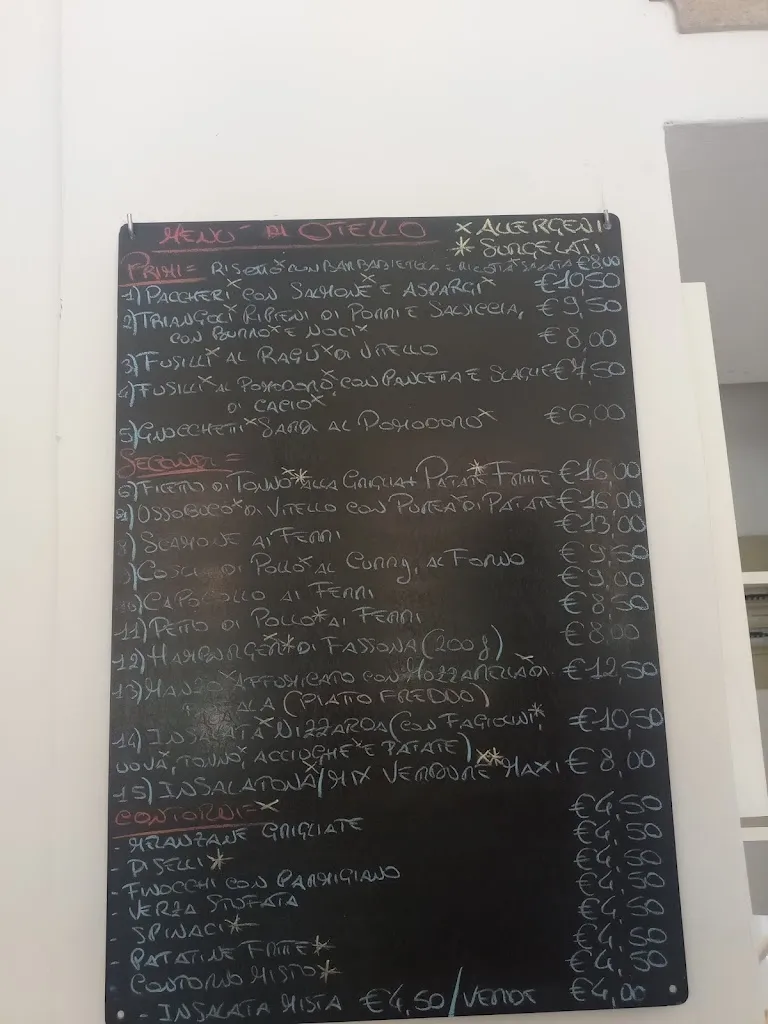 MENU' DI OTELLO × ALLERGENI
* SURGELATI
PRIMI= RISOTTO× CON BARBABIETOLA E RICOTTA× SALATA €8,00
1) PACCHERI× CON SALMONE× E ASPARGI× €10,50
2) TRIANGOLI× RIPIENI DI PORRI E SALSICCIA, €9,50
CON BURRO× E NOCI×
3) FUSILLI× AL RAGÚ× DI VITELLO €8,00
4) FUSILLI× AL POMODORO×, CON PANCETTA E SCAGLIE €7,50
DI CACIO×
5) GNOCCHETTI× SARDI AL POMODORO× €6,00
SECONDI=
6) FILETTO DI TONNO×* ALLA GRIGLIA+ PATATE* FRITTE €16,00
OSSOBUCO* DI VITELLO CON PUREA× DI PATATE €16,00
8) SCAMONE AI FERRI €13,00
9) COSCE DI POLLO* AL CURRY, AL FORNO €9,50
10) CAPOCOLLO AI FERRI €9,00
11) PETTO DI POLLO* AI FERRI €8,50
12) HAMBURGER×* DI FASSONA (200g) €8,00
13) MANZO× AFFUMICATO CON MOZZARELLA× DI €12,50
BUFALA (PIATTO FREDDO)
14) INSALATA× NIZZARDA (CON FAGIOLINI*, €10,50
UOVA×, TONNO×, ACCIUGHE× E PATATE)
15) INSALATONA×/MIX VERDURE×* MAXI €8,00
CONTORNI=×
- MELANZANE GRIGLIATE €4,50
- PISELLI* €4,50
- FINOCCHI CON PARMIGIANO €4,50
- VERZA STUFATA €4,50
- SPINACI* €4,50
- PATATINE FRITTE* €4,50
CONTORNO MISTO* €4,50
- INSALATA MISTA €4,50/VERDE €4,00